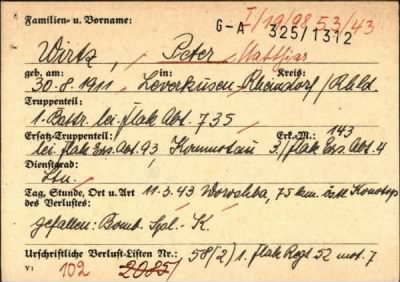 Familien- u. Vorname: I/19/98 53/43
G-A 325/1312
Wirtz, Peter Matthias
geb. am: in: Kreis:
30.8.1911 Leverkusen-Rheindorf/Rhld.
Truppenteil:
1. Battr. lei. Flak Abt. 735
Ersatz-Truppenteil: Erk.-M.: 143
lei. Flak Ers. Abt. 93 Kommotau 3./Flak Ers. Abt. 4
Dienstgrad:
Ltn.
Tag, Stunde, Ort u. Art 11.3.43 Woroshba, 75 km. östl. Konotop
des Verlustes:
gefallen: Bomb. Spl.-K.
Urschriftliche Verlust-Listen Nr.: 58(2) 1. Flak Regt 52 mot. 7
V1 102 2085/